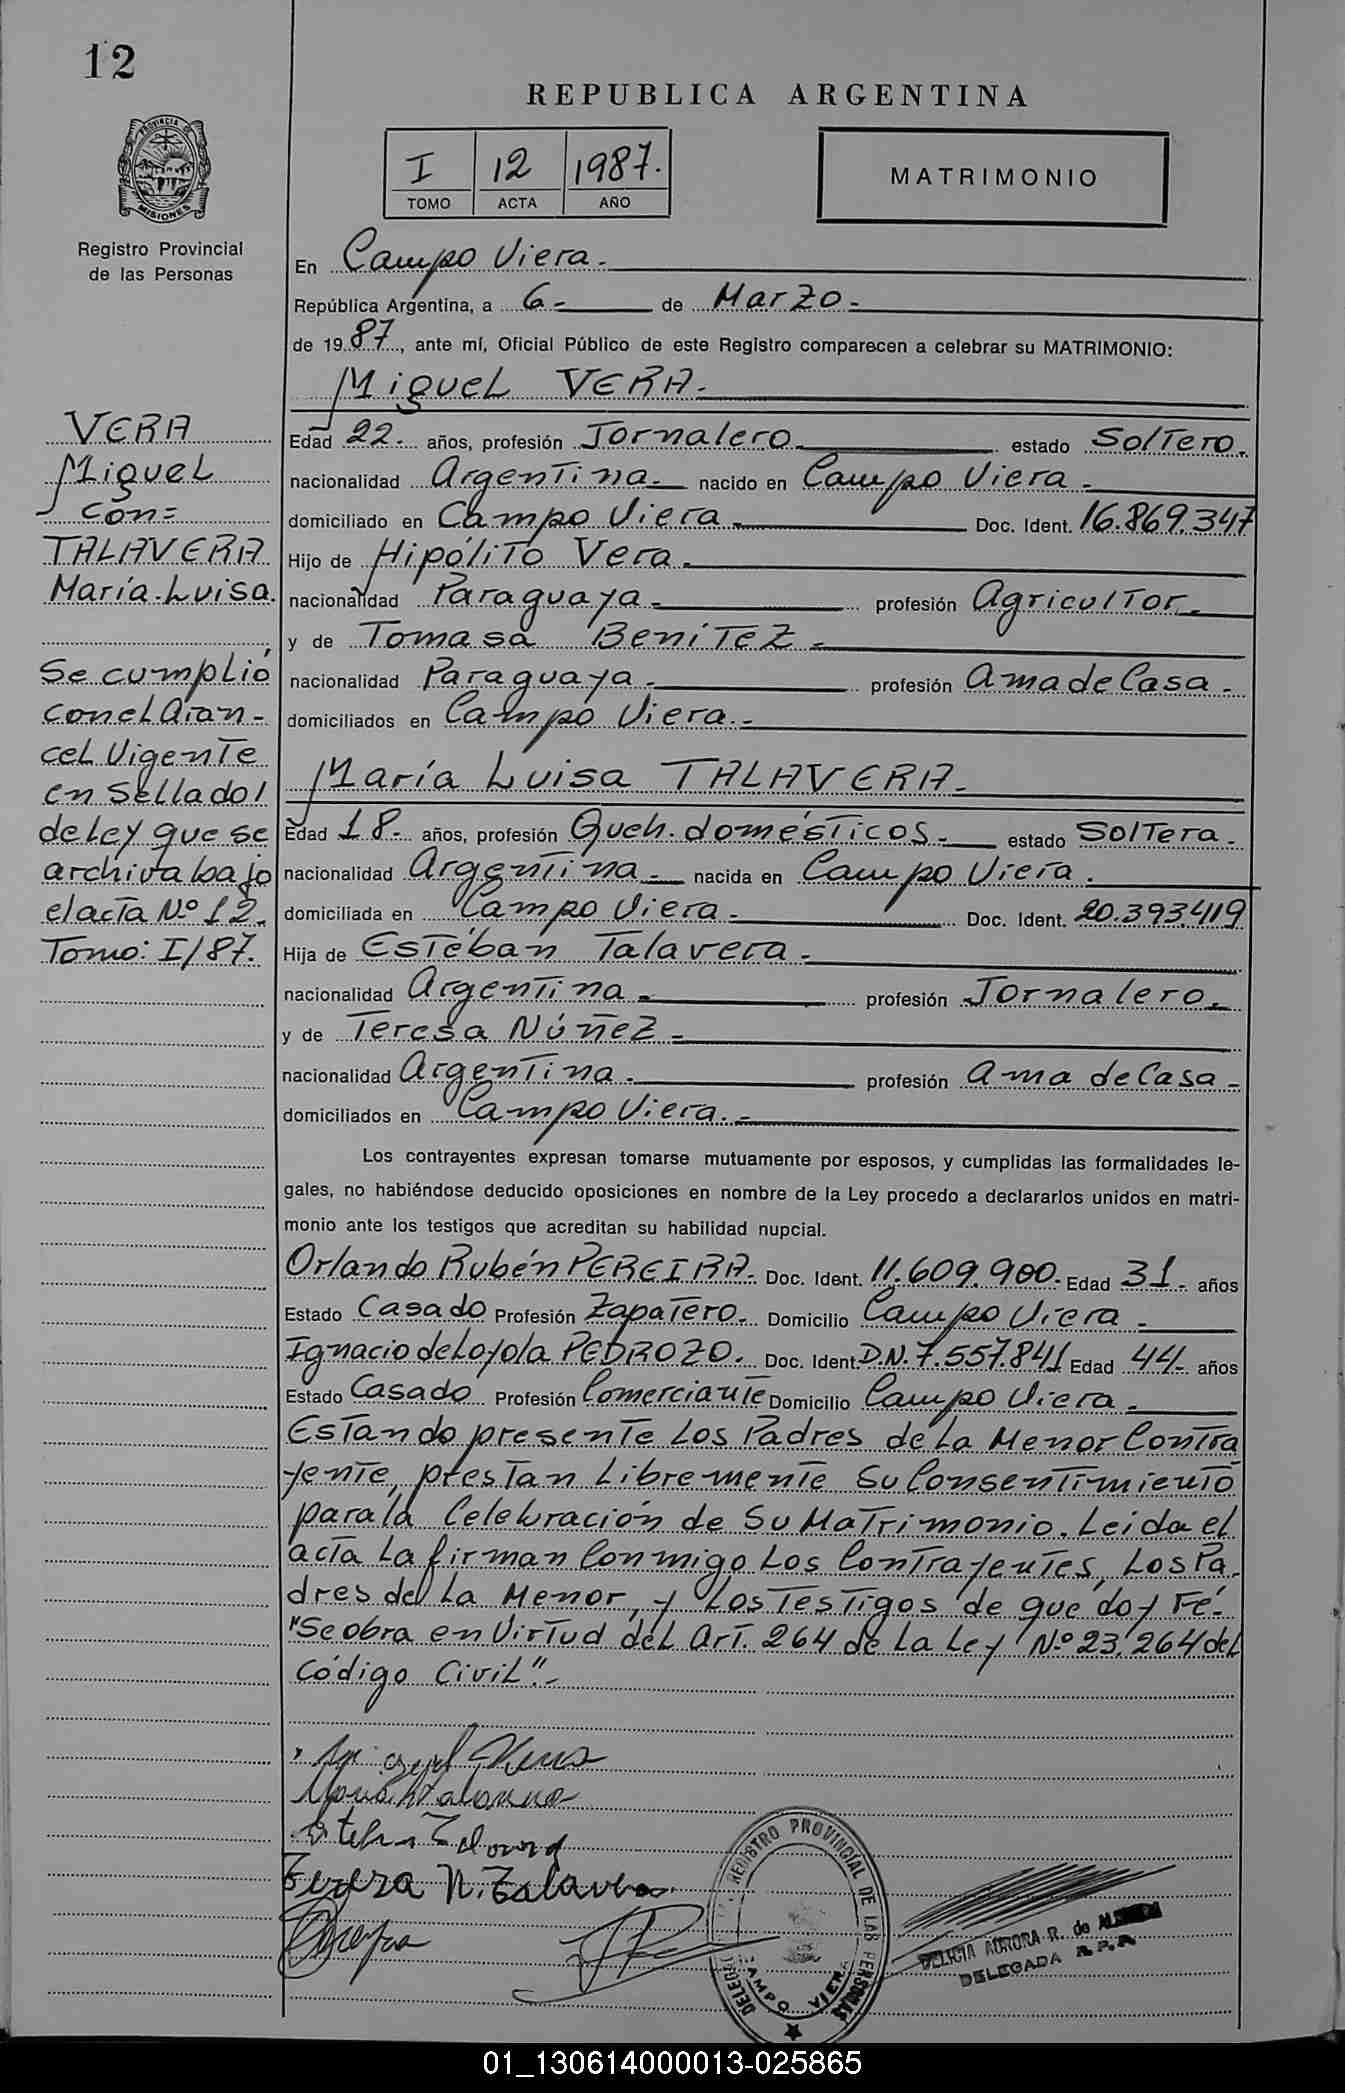 12
REPUBLICA ARGENTINA
PROVINCIA DE
MISIONES
Registro Provincial
de las Personas
I 12 1987.
TOMO ACTA AÑO
MATRIMONIO
En Campo Viera.
República Argentina, a 6 - de Marzo -
de 19 87, ante mí, Oficial Público de este Registro comparecen a celebrar su MATRIMONIO:
Miguel VERA.
VERA
Miguel
con=
TALAVERA
María Luisa.
Se cumplió
con el Aran-
cel Vigente
en Sellado/
de Ley que se
archiva bajo
el acta Nº 12.
Tomo: I/87.
Edad 22. años, profesión Jornalero estado Soltero.
nacionalidad Argentina. nacido en Campo Viera -
domiciliado en Campo Viera Doc. Ident. 16.869.347
Hijo de Hipólito Vera.
nacionalidad Paraguaya - profesión Agricultor.
y de Tomasa Benítez -
nacionalidad Paraguaya. profesión Ama de Casa -
domiciliados en Campo Viera. -
María Luisa TALAVERA -
Edad 18 - años, profesión Queh. domésticos - estado Soltera -
nacionalidad Argentina - nacida en Campo Viera.
domiciliada en Campo Viera - Doc. Ident. 20.393.419
Hija de Estéban Talavera -
nacionalidad Argentina - profesión Jornalero.
y de Teresa Núñez -
nacionalidad Argentina. profesión Ama de Casa -
domiciliados en Campo Viera. -
Los contrayentes expresan tomarse mutuamente por esposos, y cumplidas las formalidades le-
gales, no habiéndose deducido oposiciones en nombre de la Ley procedo a declararlos unidos en matri-
monio ante los testigos que acreditan su habilidad nupcial.
Orlando Rubén PEREIRA. Doc. Ident. 11.609.900. Edad 31 - años
Estado Casado Profesión Zapatero. Domicilio Campo Viera -
Ignacio de Loyola PEDROZO. Doc. Ident. D.N. 7.557.841 Edad 44 - años
Estado Casado Profesión Comerciante Domicilio Campo Viera. -
Estando presente Los Padres de la Menor Contra
yente, prestan Libremente Su Consentimiento
para la Celebración de Su Matrimonio. Leida el
acta La firman Conmigo Los Contrayentes, Los Pa
dres de La Menor, y Los Testigos de que doy Fé.
"Se obra en Virtud del Art. 264 de La Ley Nº 23.264 del
Código Civil". -
Teresa N. Talavera
REGISTRO PROVINCIAL DE LAS PERSONAS
CAMPO VIERA
DELICIA AURORA R. de
DELEGADA
01_130614000013-025865